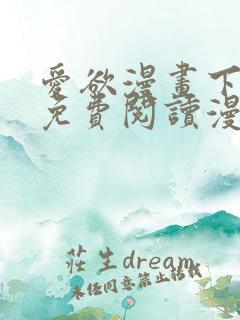 愛欲漫畫下
免費閱讀漫
莊生dream
未經同意禁止轉載